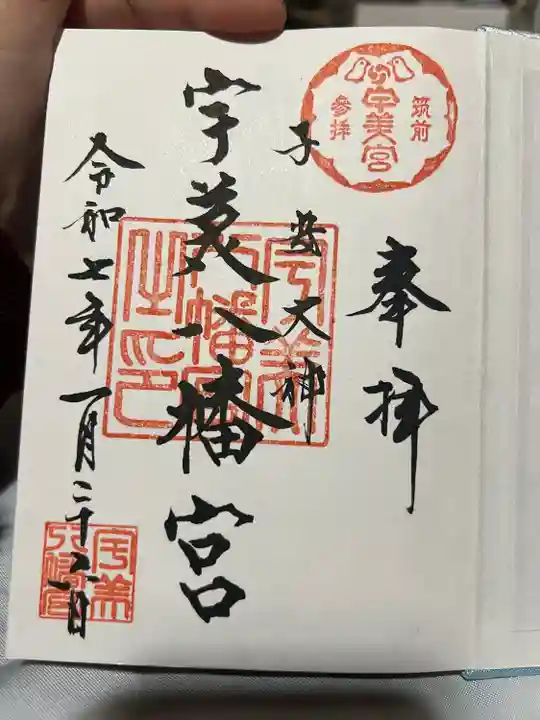 奉拝
筑前
宇美宮
參拝
子安大神
宇美八幡宮
宇美
八幡宮
之印
令和七年一月二十六日
宇美
八幡宮